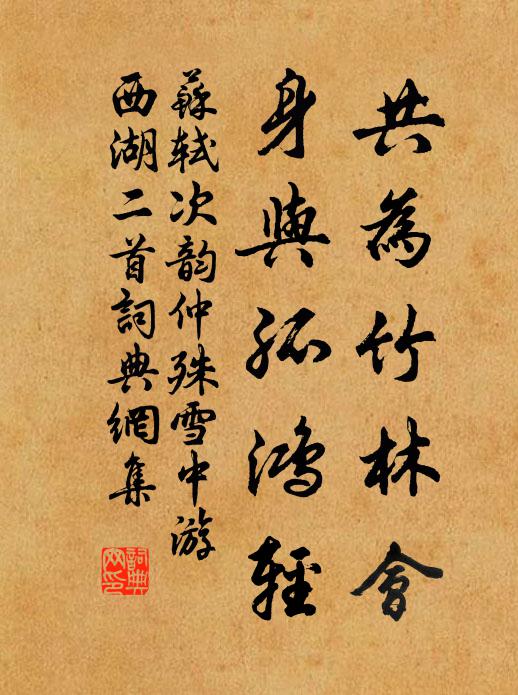 共為竹林會
身與孤鴻輕
蘇軾次韵仲殊雪中游
西湖二首詞典網集
詞典網印